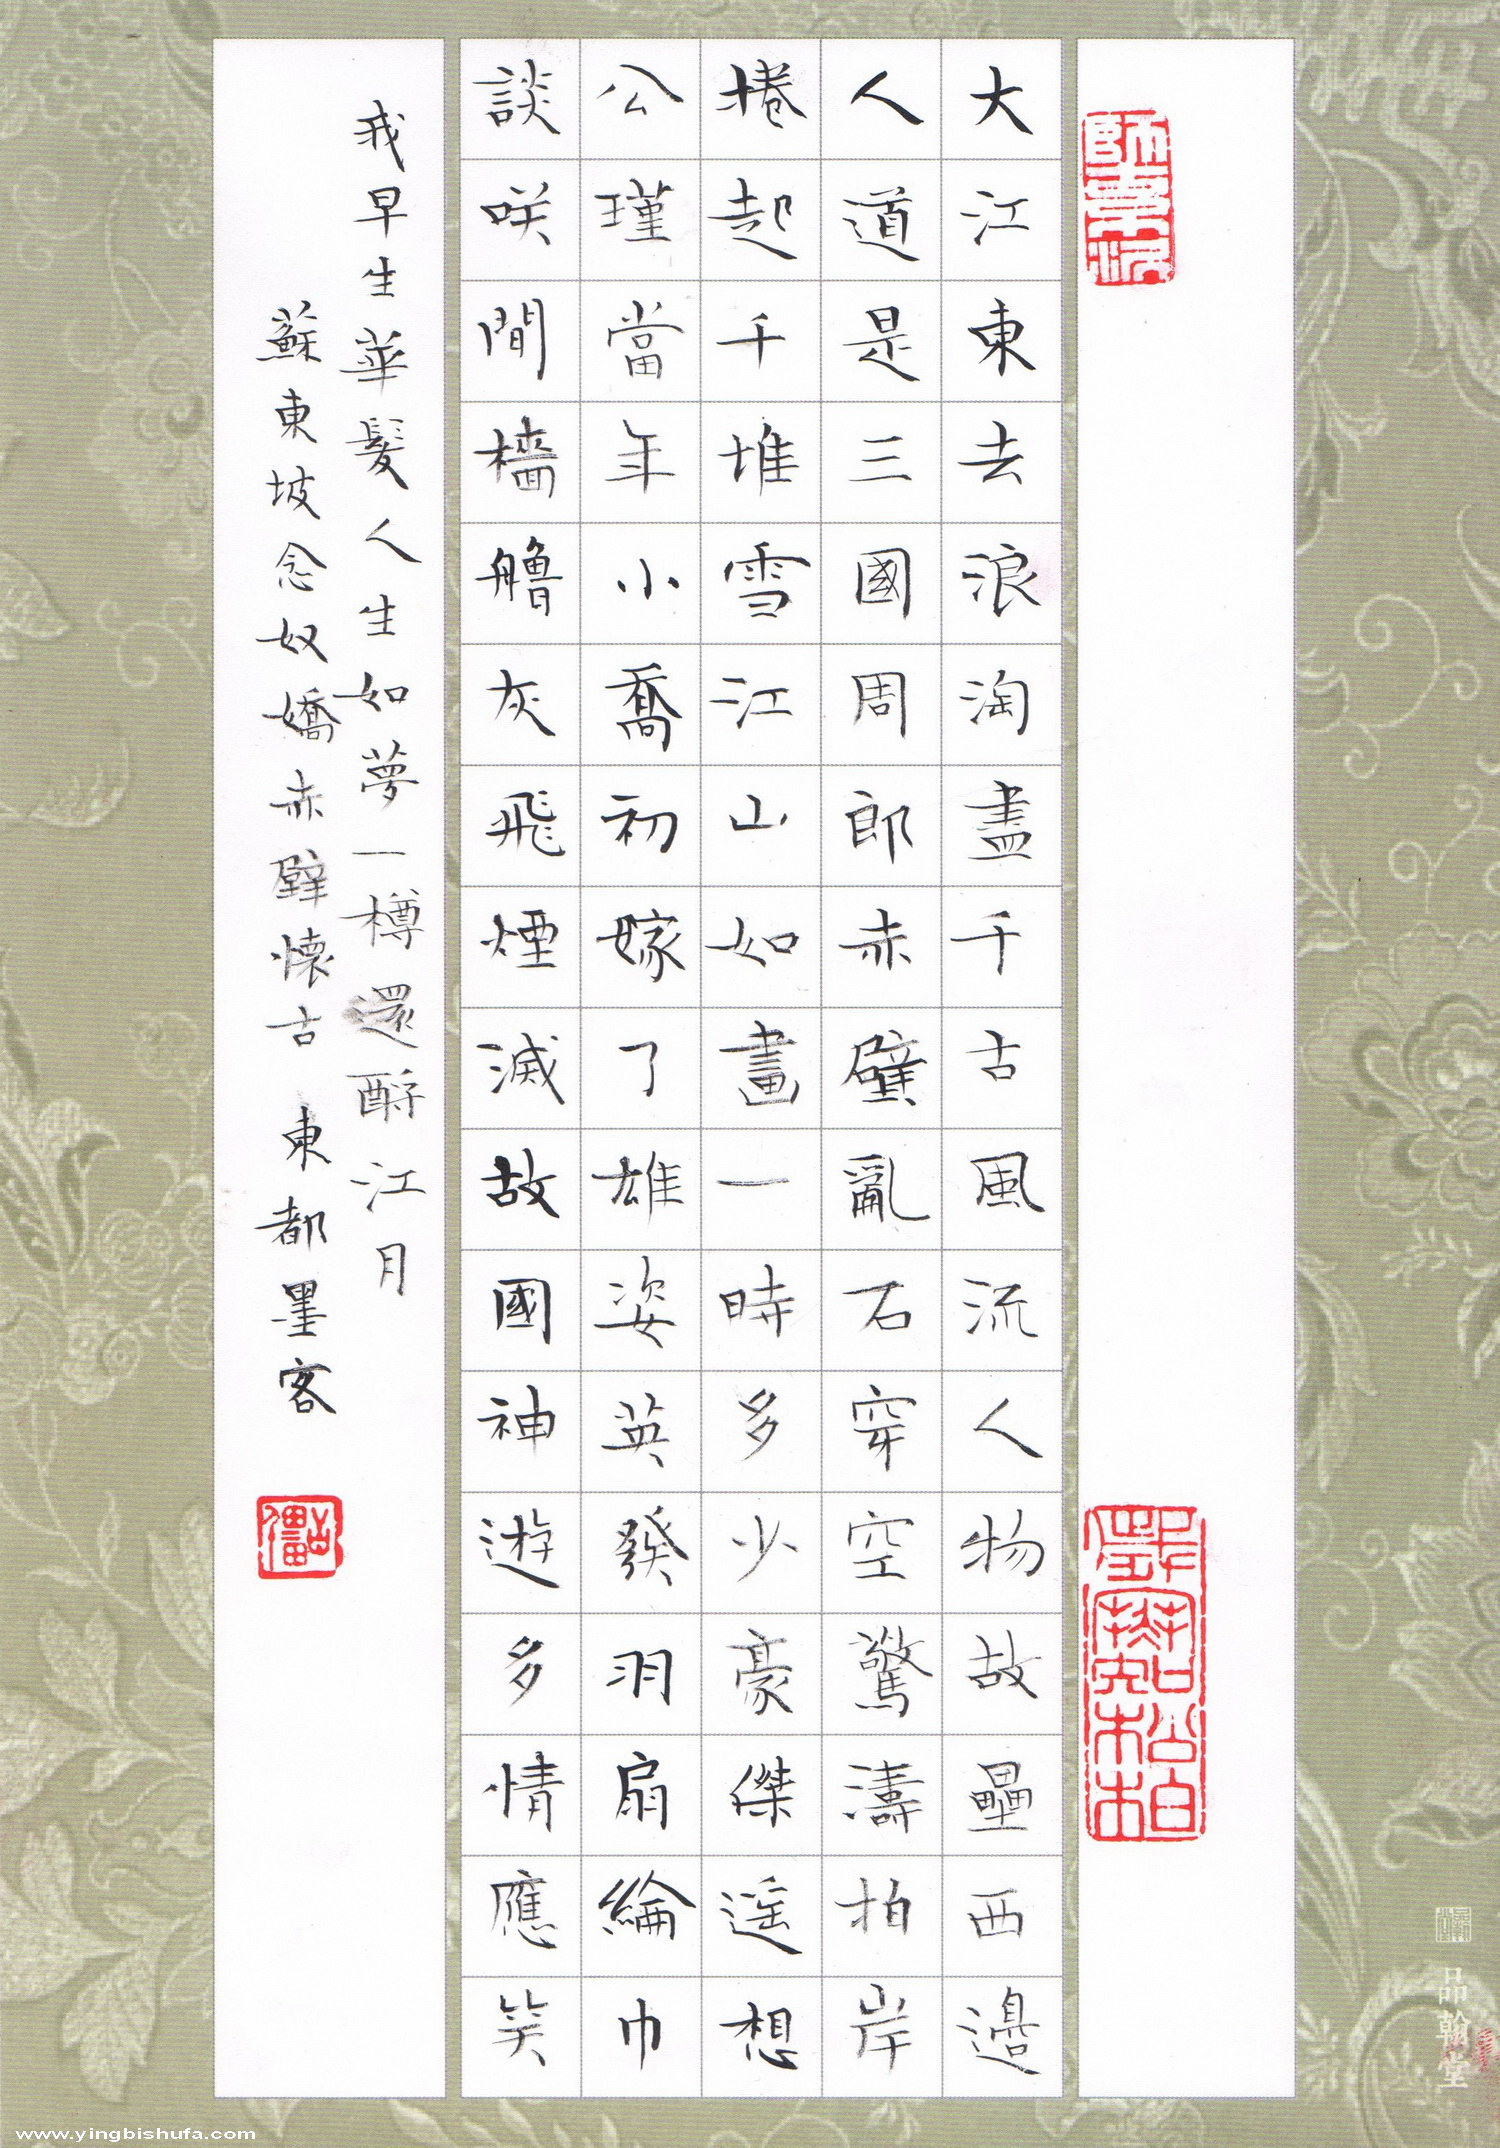 大江東去浪淘盡千古風流人物故壘西邊
人道是三國周郎赤壁亂石穿空驚濤拍岸
捲起千堆雪江山如畫一時多少豪傑遥想
公瑾當年小喬初嫁了雄姿英發羽扇綸巾
談咲間檣艣灰飛煙滅故國神遊多情應笑
我早生華髮人生如夢一樽還酹江月
蘇東坡念奴嬌赤壁懷古 東都墨客
品翰堂
www.yingbishufa.com